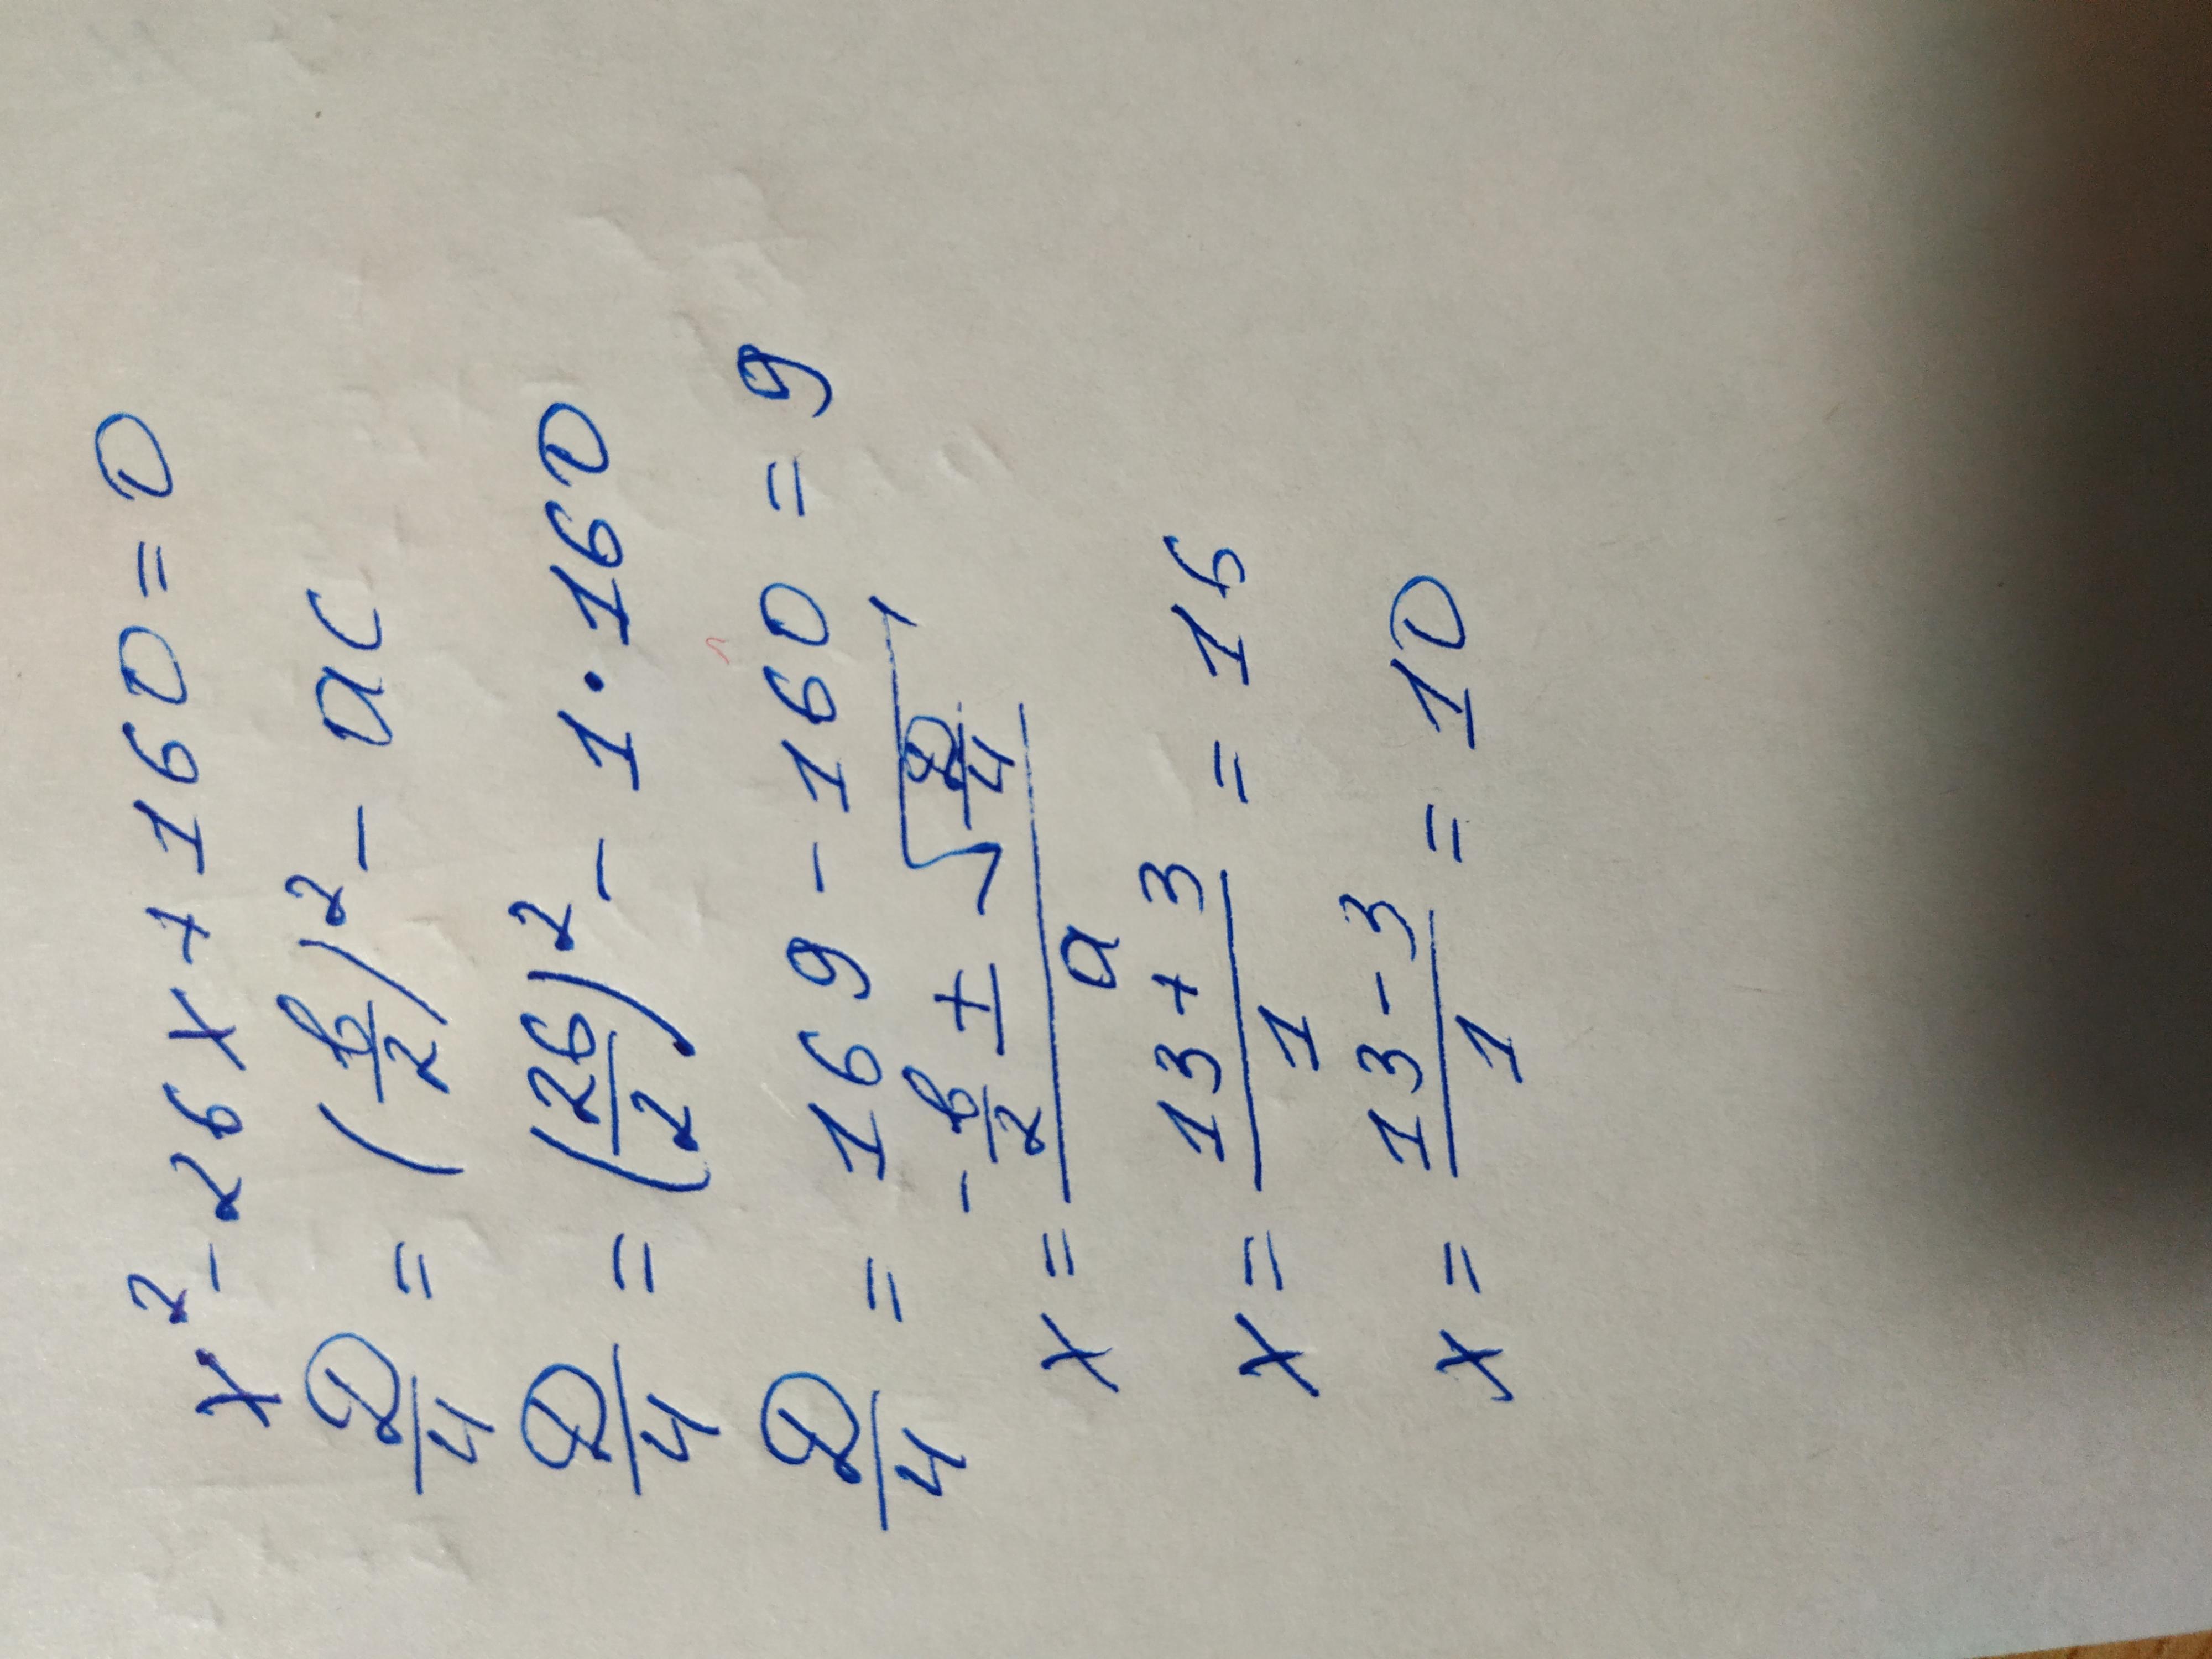 x² - 26x + 160 = 0
D/4 = (b/2)² - ac
D/4 = (26/2)² - 1 · 160
D/4 = 169 - 160 = 9
x = (-b/2 ± √(D/4)) / a
x = (13 + 3) / 1 = 16
x = (13 - 3) / 1 = 10